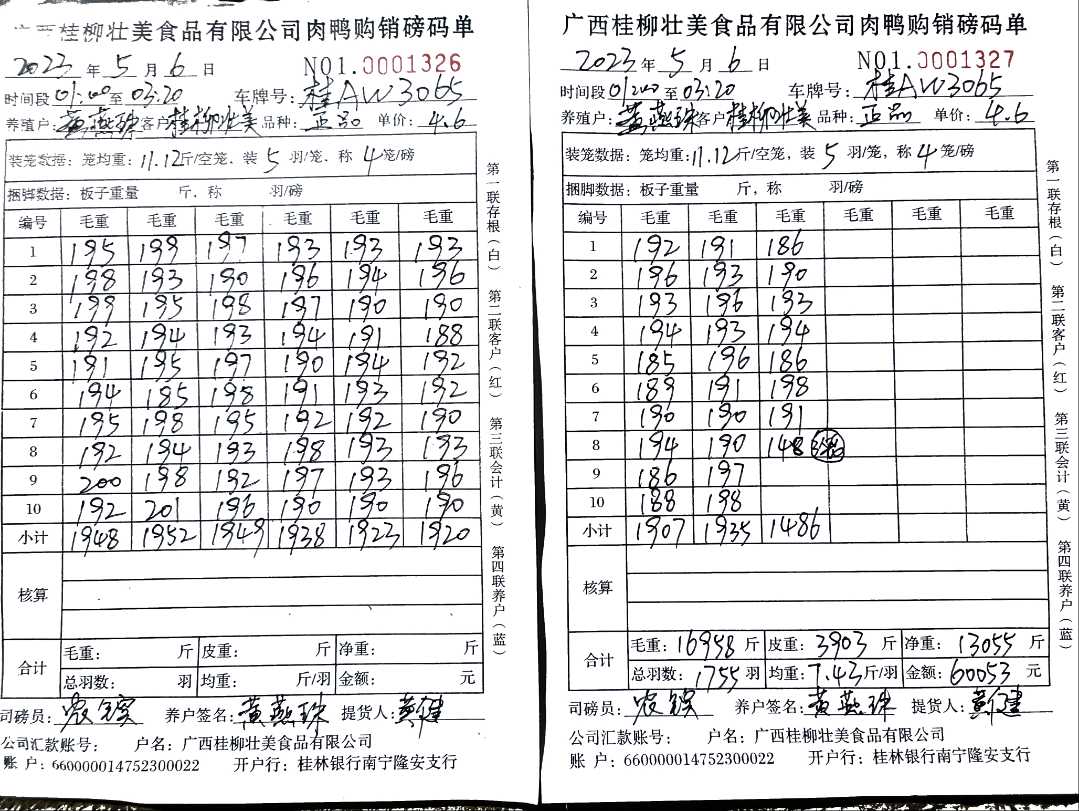 广西桂柳壮美食品有限公司肉鸭购销磅码单
2023 年 5 月 6 日 NO1.0001326
时间段 01:00 至 03:20 车牌号: 桂AW3065
养殖户: 黄燕珠 客户 桂柳壮美 品种: 正品 单价: 4.6
装笼数据: 笼均重: 11.12斤/空笼、装 5 羽/笼、称 4笼/磅
捆脚数据: 板子重量 斤, 称 羽/磅
编号 毛重 毛重 毛重 毛重 毛重 毛重
1 195 199 197 193 193 193
2 198 193 190 196 194 196
3 199 195 198 197 190 190
4 192 194 193 194 191 188
5 191 195 197 190 194 192
6 194 185 198 191 193 192
7 195 198 195 192 192 190
8 192 194 193 198 193 193
9 200 198 192 197 193 196
10 192 201 196 190 190 190
小计 1948 1952 1949 1938 1923 1920
核算
合计 毛重: 斤 皮重: 斤 净重: 斤
总羽数: 羽 均重: 斤/羽 金额: 元
司磅员: 农 养户签名: 黄燕珠 提货人: 黄健
公司汇款账号: 户名: 广西桂柳壮美食品有限公司
账 户: 660000014752300022 开户行: 桂林银行南宁隆安支行
第一联存根(白) 第二联客户(红) 第三联会计(黄) 第四联养户(蓝)
广西桂柳壮美食品有限公司肉鸭购销磅码单
2023 年 5 月 6 日 NO1.0001327
时间段 01:00 至 03:20 车牌号: 桂AW3065
养殖户: 黄燕珠 客户: 桂柳壮美 品种: 正品 单价: 4.6
装笼数据: 笼均重: 11.12斤/空笼, 装 5 羽/笼, 称 4笼/磅
捆脚数据: 板子重量 斤, 称 羽/磅
编号 毛重 毛重 毛重 毛重 毛重 毛重
1 192 191 186
2 196 193 190
3 193 196 193
4 194 193 194
5 185 196 186
6 189 191 198
7 190 190 191
8 194 190 148
9 186 197
10 188 198
小计 1907 1935 1486
核算
合计 毛重: 16958 斤 皮重: 3903 斤 净重: 13055 斤
总羽数: 1755 羽 均重: 7.43 斤/羽 金额: 60053 元
司磅员: 农 养户签名: 黄燕珠 提货人: 黄健
公司汇款账号: 户名: 广西桂柳壮美食品有限公司
账 户: 660000014752300022 开户行: 桂林银行南宁隆安支行
第一联存根(白) 第二联客户(红) 第三联会计(黄) 第四联养户(蓝)